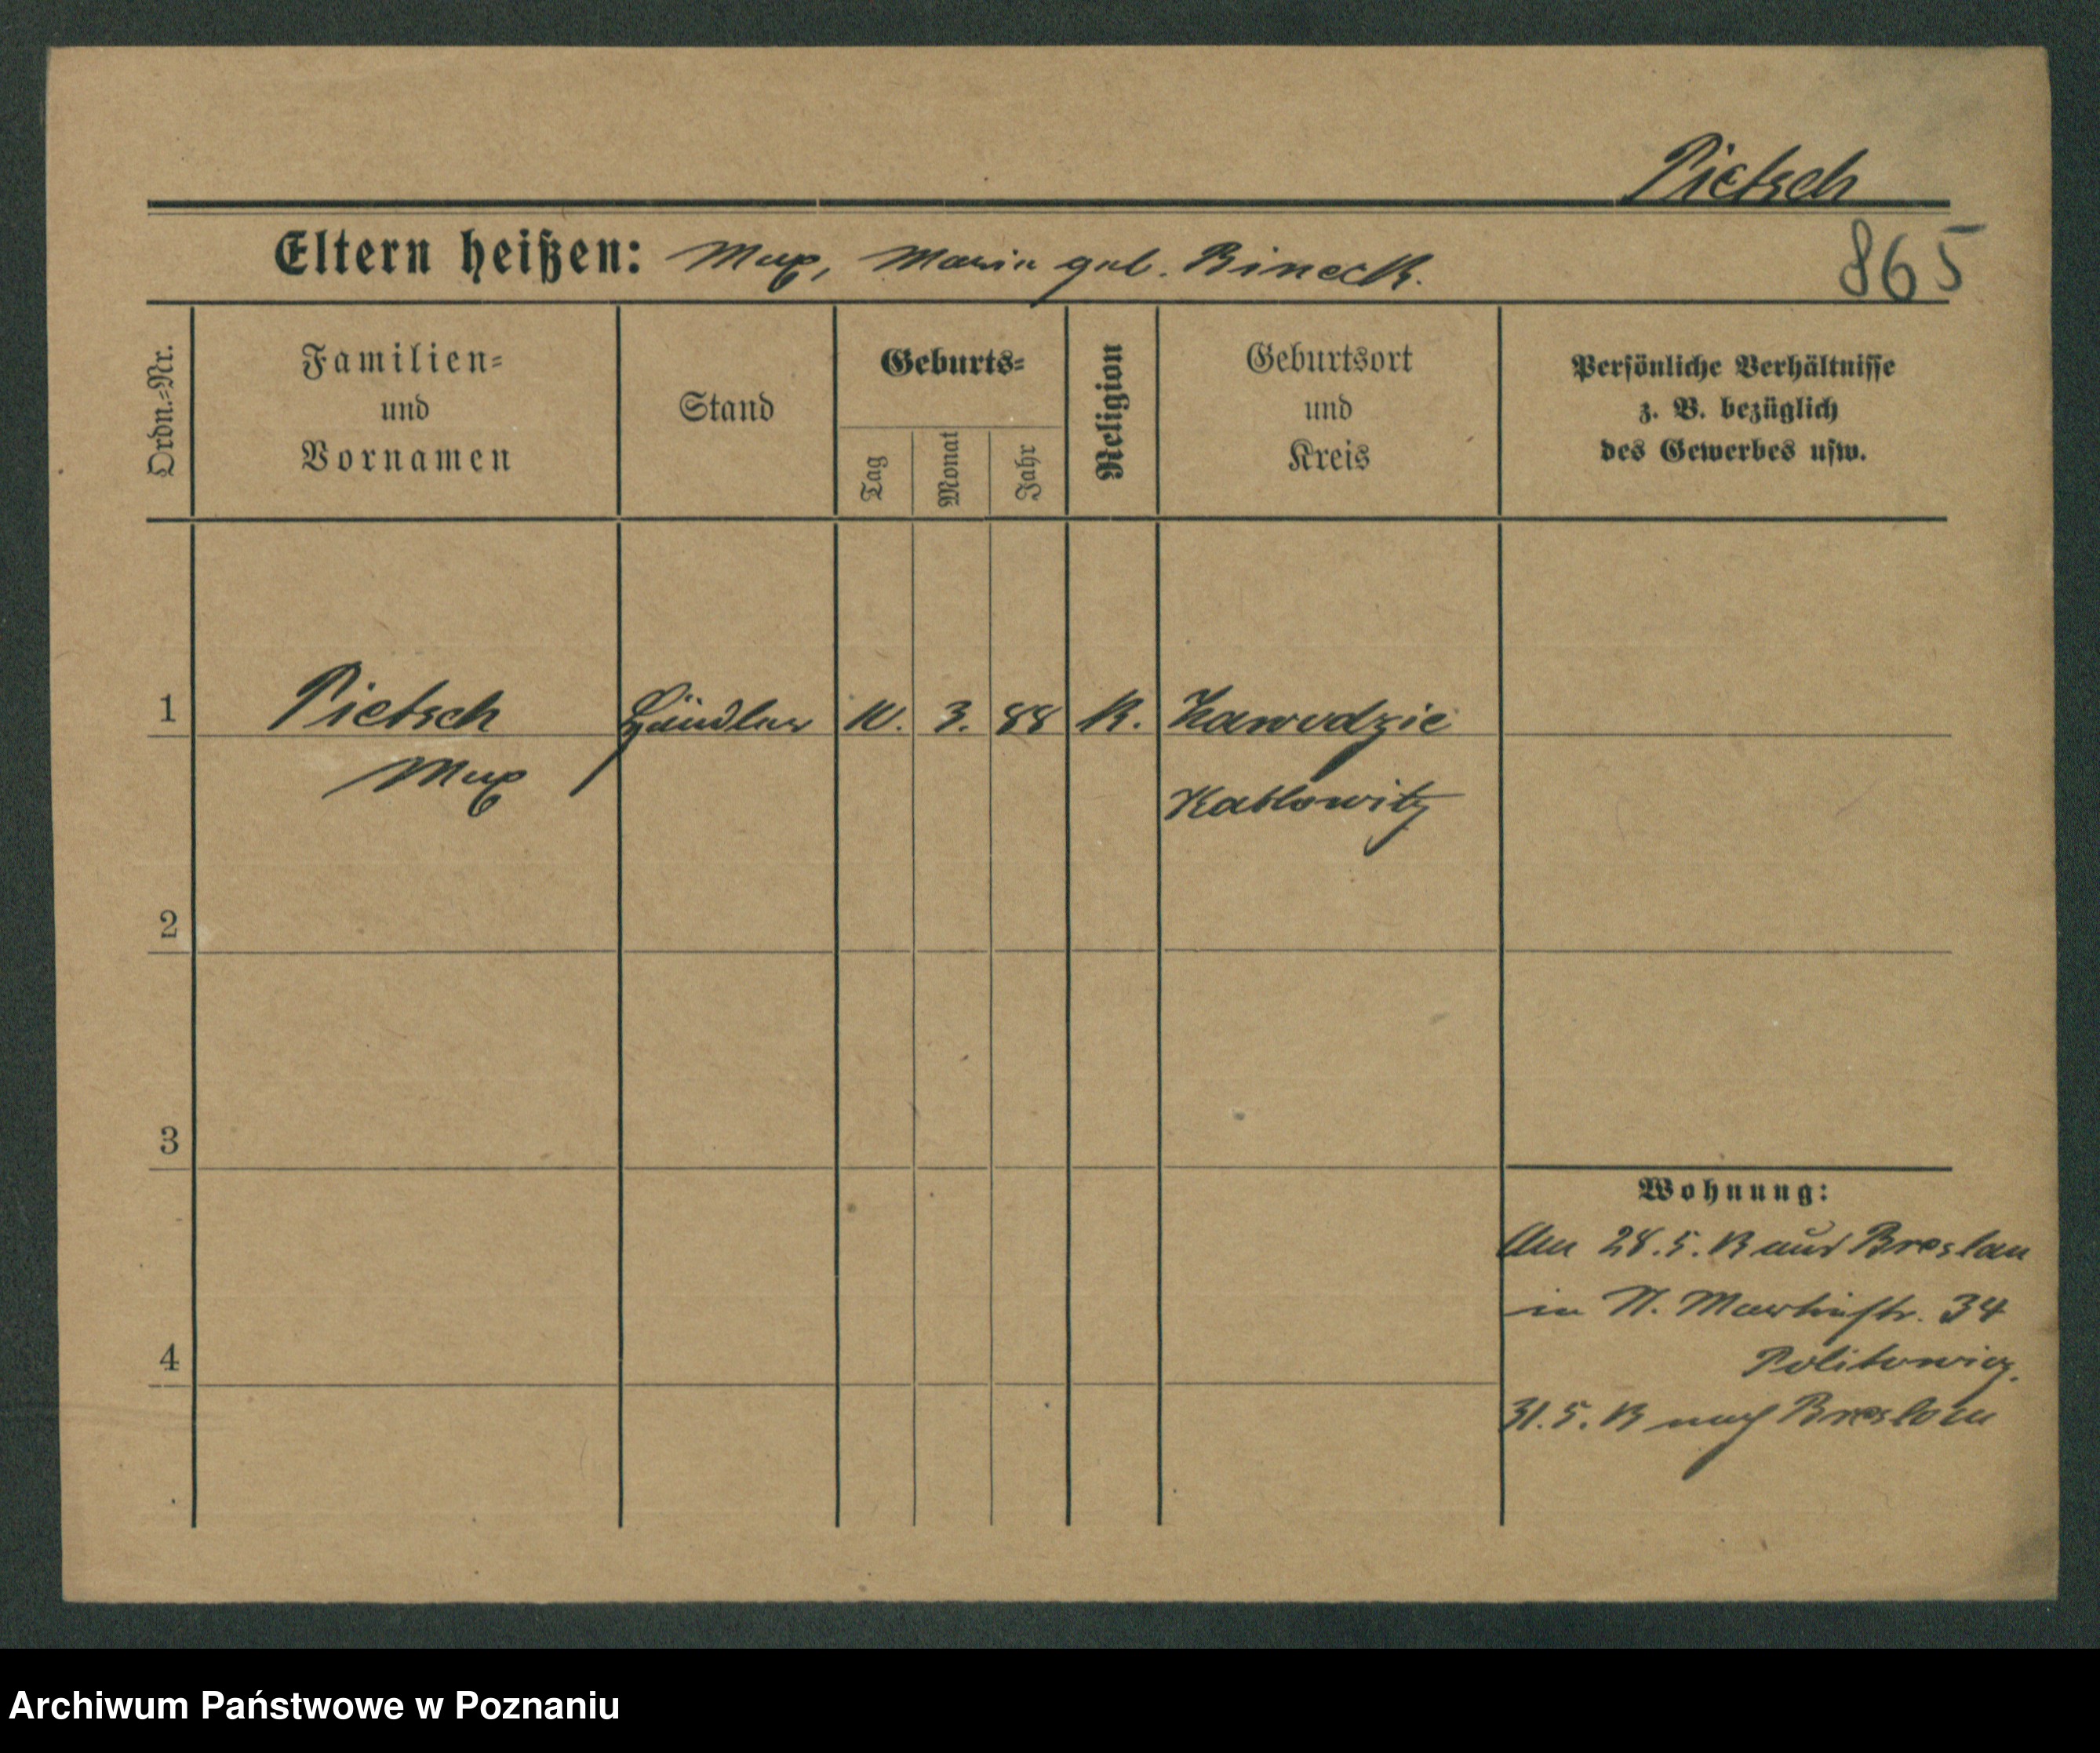 Pietsch
865
Eltern heißen: Max, Maria geb. Bineck.
Ordn.-Nr.
Familien-
und
Vornamen
Stand
Geburts-
Tag
Monat
Jahr
Religion
Geburtsort
und
Kreis
Persönliche Verhältnisse
z. B. bezüglich
des Gewerbes usw.
1 Pietsch Händler 10. 3. 88 K. Zawodzie
Max Kattowitz
2
3
Wohnung:
Am 28. 5. 13 aus Breslau
in N. Martinstr. 34
4
Politowicz.
31. 5. 13 nach Breslau
Archiwum Państwowe w Poznaniu